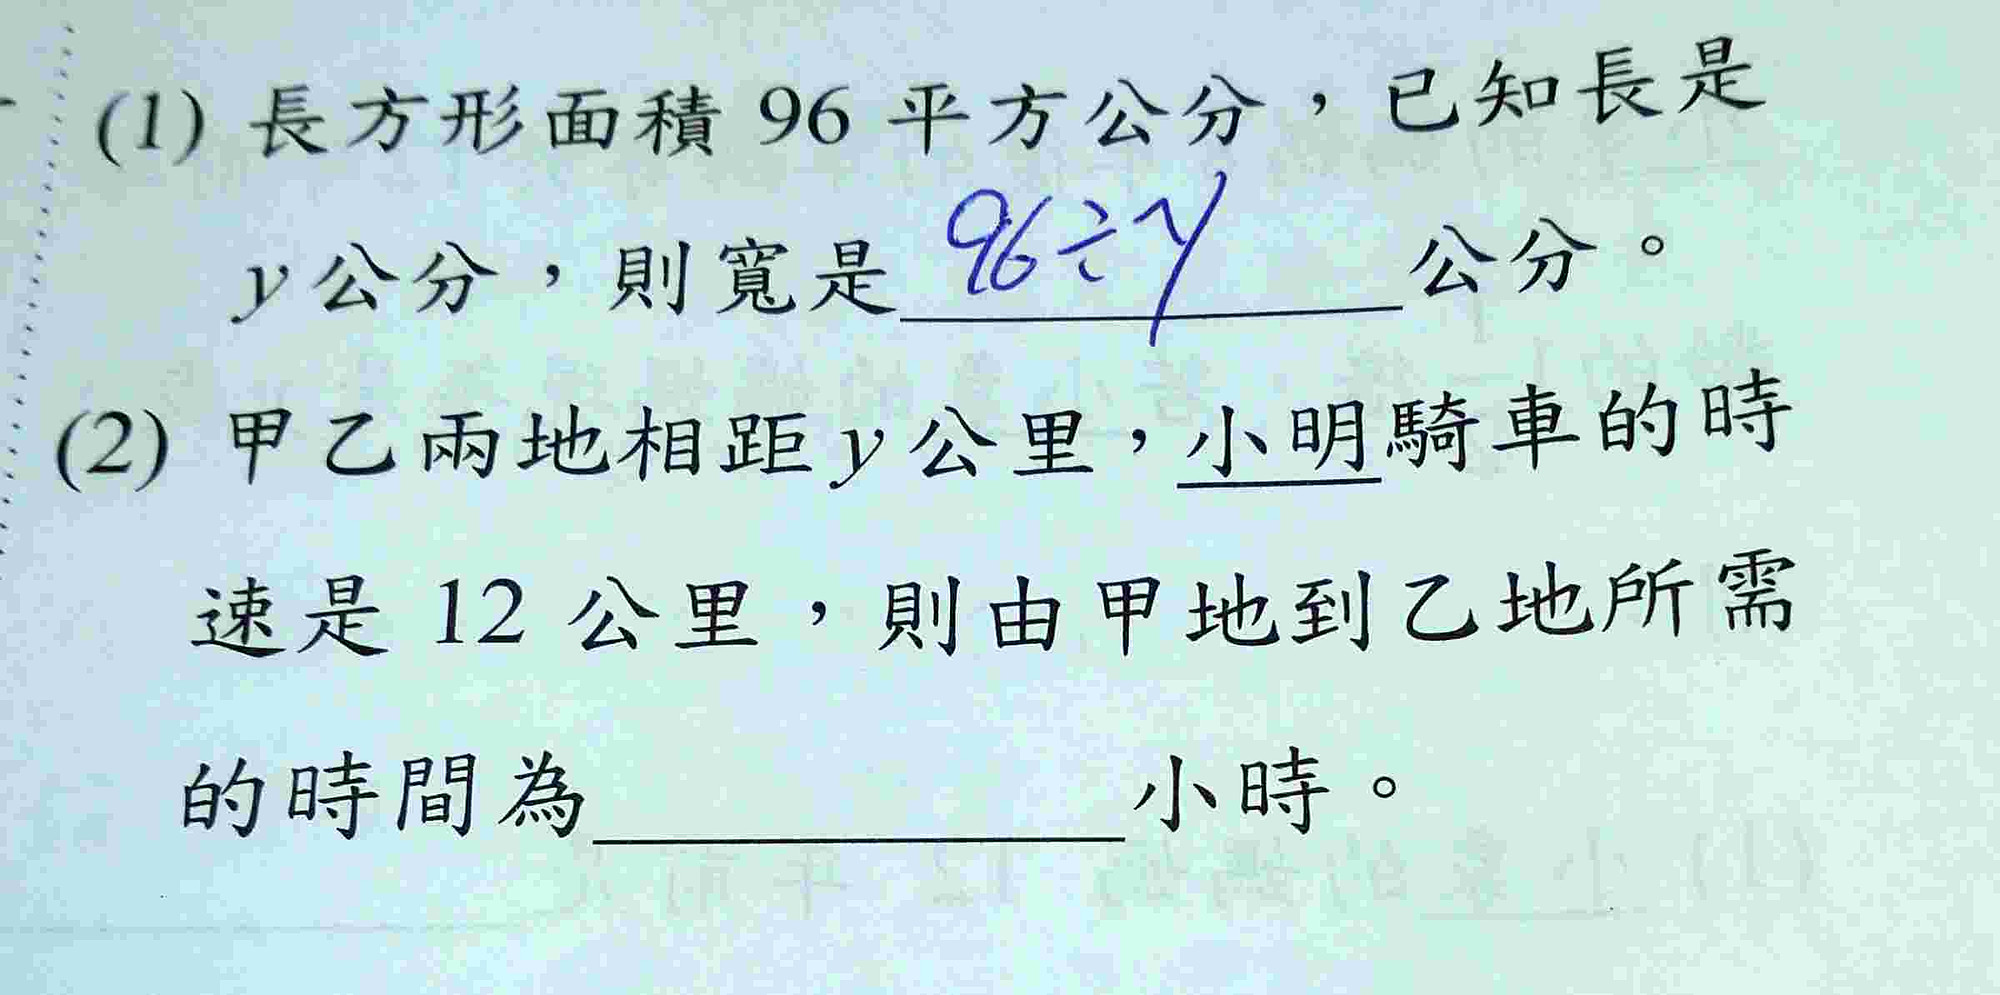 (1) 長方形面積 96 平方公分，已知長是
y公分，則寬是 96÷y 公分。
(2) 甲乙兩地相距y公里，小明騎車的時
速是 12 公里，則由甲地到乙地所需
的時間為＿＿＿＿＿＿小時。